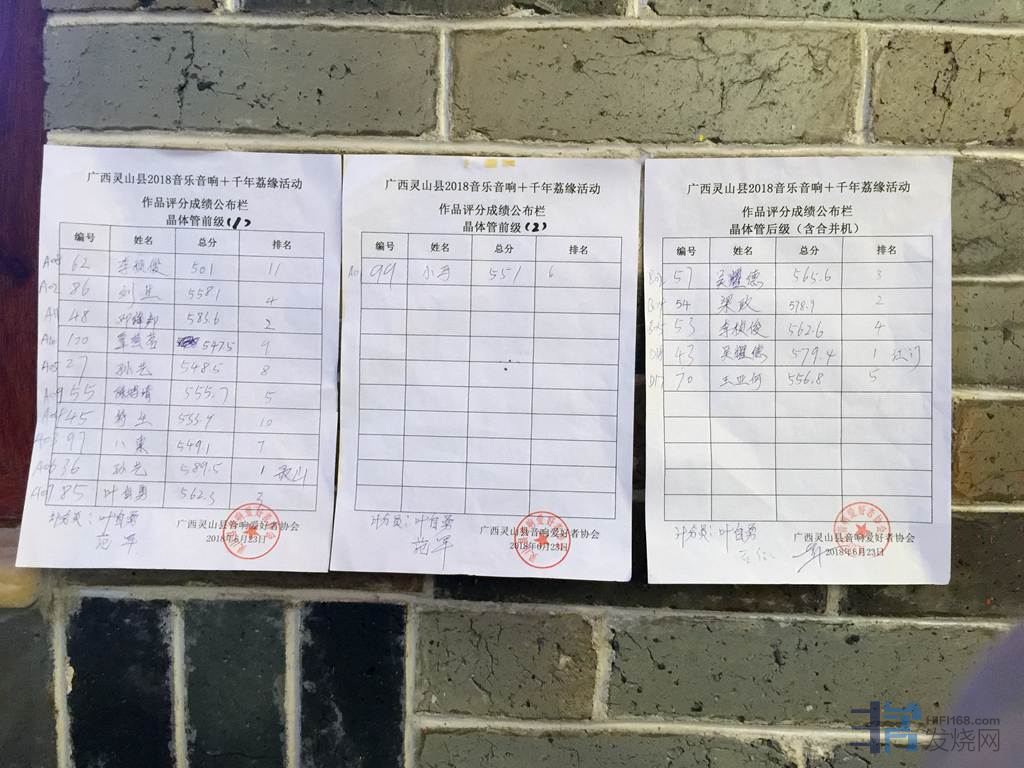 广西灵山县2018音乐音响+千年荔缘活动
作品评分成绩公布栏
晶体管前级(1)
编号 姓名 总分 排名
62 李桢俊 501 11
A02 86 刘 558.1 4
48 583.6 2
120 5475 9
A05 27 孙 548.5 8
A09 55 555.7 5
45 10
97 八 549.1 7
36 孙 589.5 1
85 叶自勇 562.3 3
计分员:叶自勇
范军
广西灵山县音响爱好者协会
2018年6月23日
广西灵山县2018音乐音响+千年荔缘活动
作品评分成绩公布栏
晶体管前级(2)
编号 姓名 总分 排名
99 小 551 6
计分员:叶自勇
范军
广西灵山县音响爱好者协会
2018年6月23日
广西灵山县2018音乐音响+千年荔缘活动
作品评分成绩公布栏
晶体管后级(含合并机)
编号 姓名 总分 排名
57 吴耀德 565.6 3
54 梁政 578.9 2
53 李桢俊 562.6 4
43 吴耀德 579.4 1 江门
D17 70 王亚何 556.8 5
计分员:叶自勇
广西灵山县音响爱好者协会
2018年6月23日
HIFI168.com
发烧网